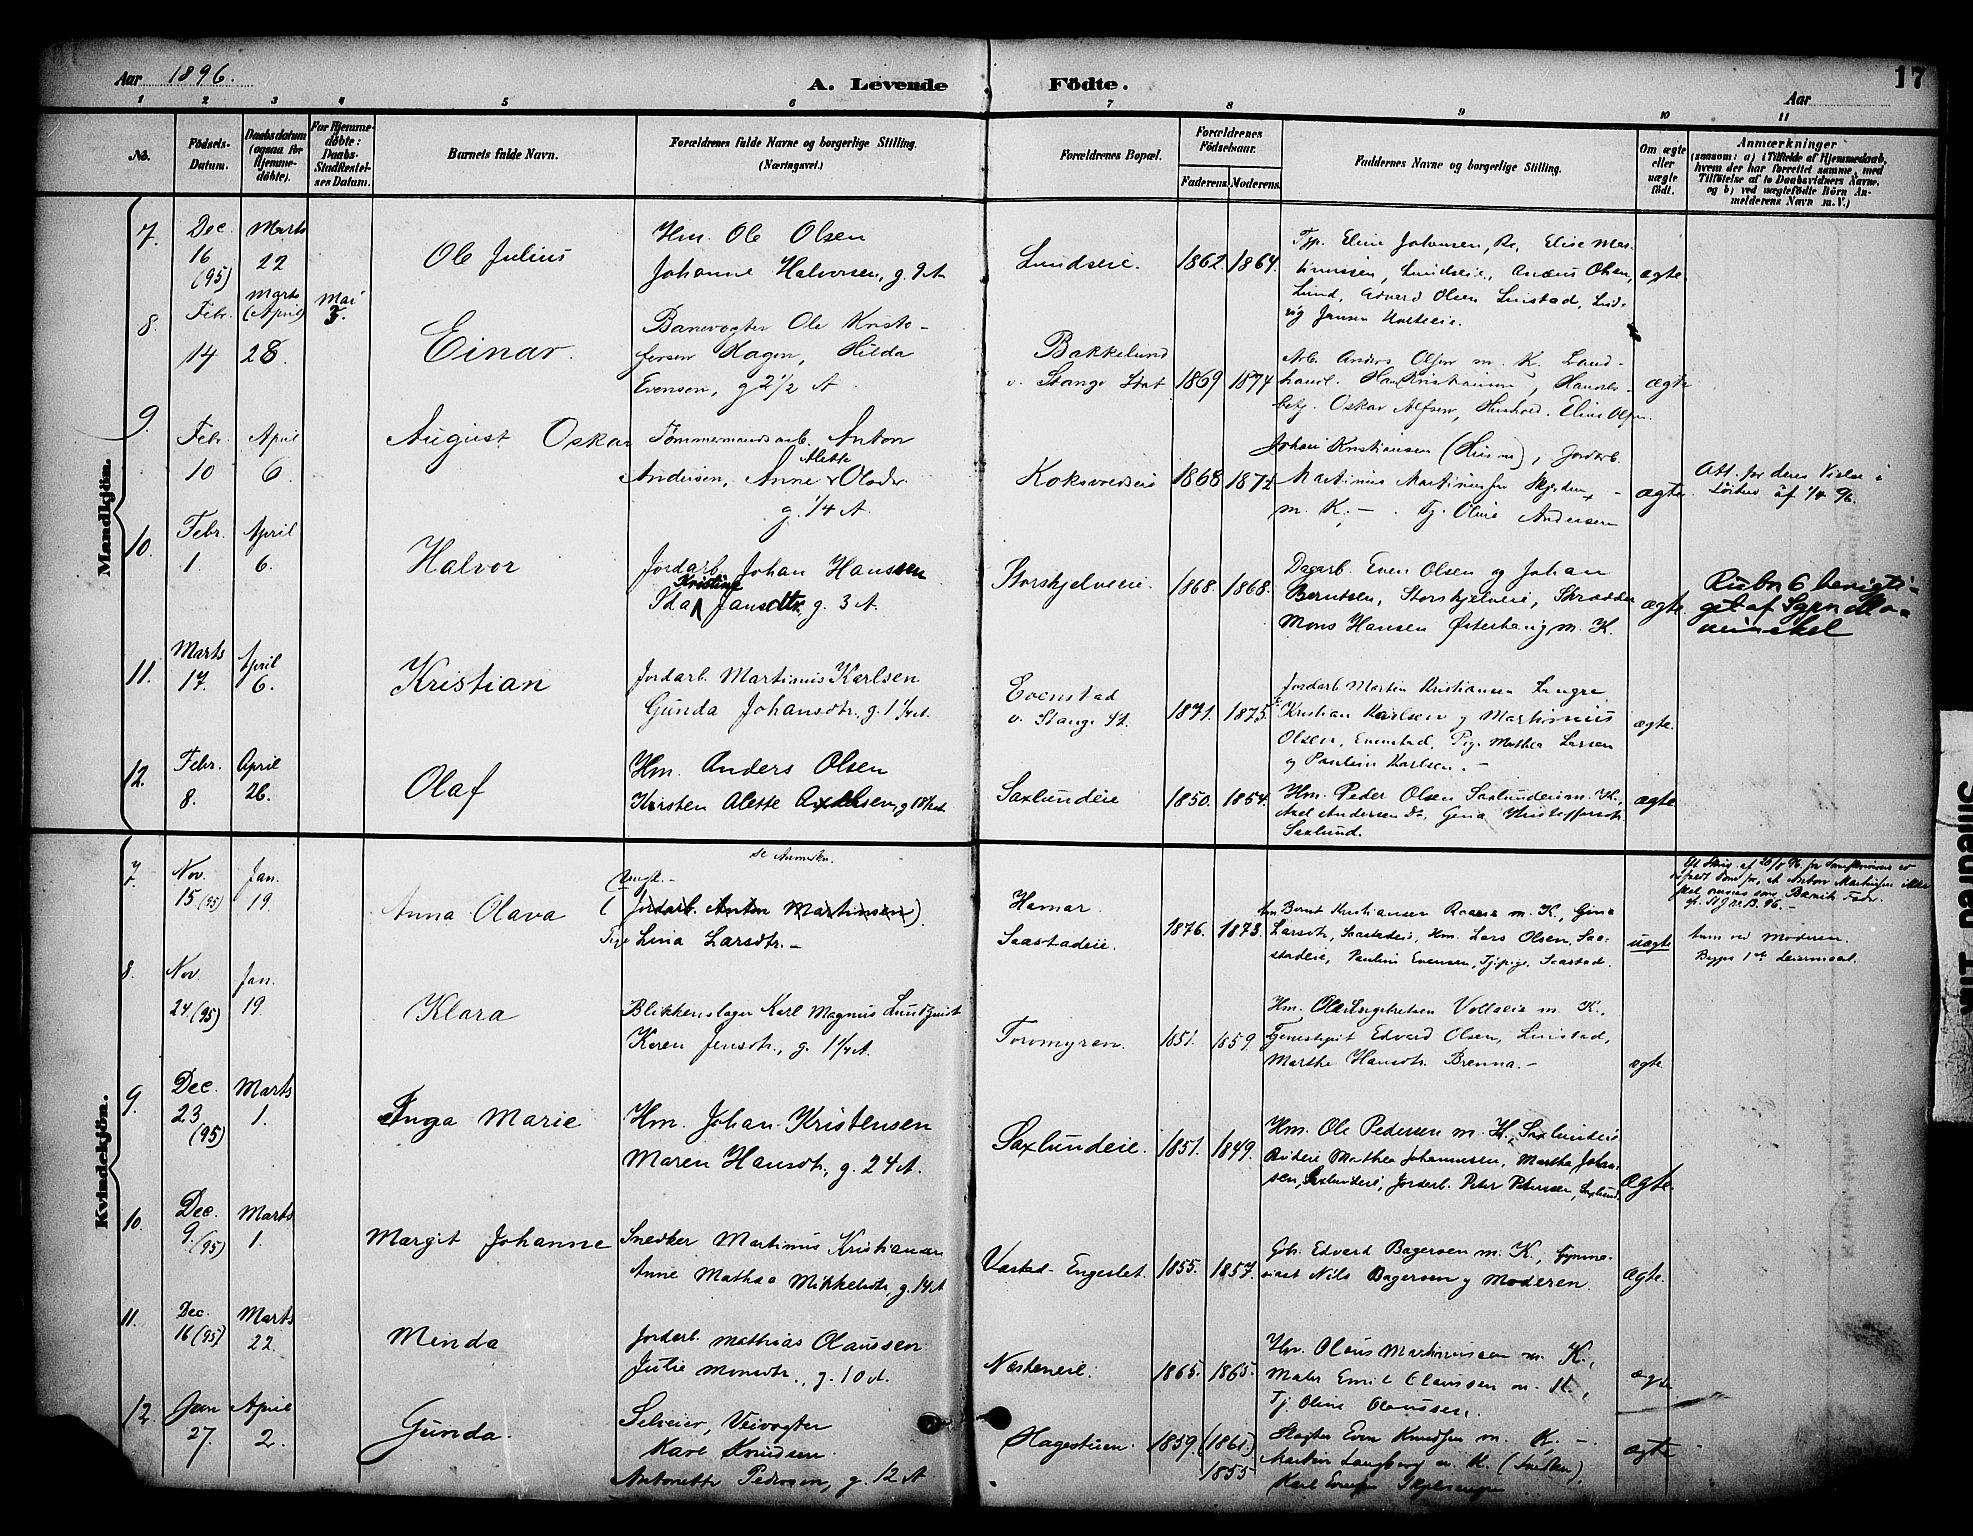 Aar 1896.
A. Levende Födte.
17
Aar
1 2 3 4 5 6 7 8 9 10 11
No.
Födsels-Datum.
Daabsdatum (ogsaa for Hjemme-döbte).
For Hjemme-döbte: Daabs-Stadfæstel-ses Datum.
Barnets fulde Navn.
Forældrenes fulde Navne og borgerlige Stilling. (Næringsvei.)
Forældrenes Bopæl.
Forældrenes Födselsaar.
Faderens. Moderens.
Faddernes Navne og borgerlige Stilling.
Om ægte eller uægte födt.
Anmærkninger
(saasom: a) i Tilfælde af Hjemmedaab,
hvem der har forrettet samme, med
Tilföielse af to Daabsvidners Navne,
og b) ved uægtefödte Börn An-
melderens Navn m. V.)
Mandkjön.
7. Dec. 16 (95) Marts 22
Ole Julius
Hm. Ole Olsen
Johanne Halvorsen, g. 9 A.
Lundseie. 1862. 1864.
Elise Mar-
tinussen, Lundseie, Anders Olsen,
Lund, Edvard Olsen Linstad, Lud-
vig Jansen
ægte.
8. Febr. 14 Marts (April) 28 Mai 3.
Einar.
Banevogter Ole Kristo-
fersen Hagen, Hilda
Evensen, g 2 1/2 A.
Bakkelund
v. Stange Stat 1869 1874
Arb. Anders Olsen m. K. Land-
handl. Hans Kristiansen, Handels-
betj. Oskar Alfsen, Hushold. Eline Olsen.
ægte
9. Febr. 10 April 6
August Oskar
Tömmermandsarb. Anton
Andersen, Anne Alette Olsdr.
g. 1/4 A.
Koksvedeie 1868 1872
Johan Kristiansen (Husm), Jordarb.
Martinus Martinsen
m. K. - . Tj. Oline Andersen
ægte
Att. for deres Vielse i
Löiten af 1/4 96.
10. Febr. 1 April 6.
Halvor
Jordarb. Johan Hanssen
Ida Kristine Jansdtr. g. 3 A.
Storskjelveeie. 1868. 1868.
Dagarb. Even Olsen og Johan
Berntsen, Storskjelveeie, Skrædder
Mons Hansen Østerhaug m. K.
ægte
Rubr. 6 berigti-
get af Sgpr.
11. Marts 17. April 6.
Kristian
Jordarb. Martinus Karlsen
Gunda Johansdtr. g. 1 1/4 A.
Evenstad
v. Stange St. 1871. 1875
Jordarb Martin Kristiansen
Kristian Karlsen og Martinius
Olsen, Evenstad, Pig. Mathea Larsen
og Pauline Karlsen. -
ægte.
12. Febr. 8. April 26.
Olaf
Hm. Anders Olsen
Kirsten Alette Axelsen, g
Saxlundeie 1850. 1854.
Hm. Peder Olsen Saxlundeie m. K.,
Axel Andersen Do, Gina Kristoffersdtr.
Saxlund.
ægte
Kvindekjön.
7. Nov. 15 (95) Jan. 19.
Anna Olava
se Anmerkn.
Ungk. -
(Jordarb. Anton Martinsen).
Pige Lina Larsdtr. -
Hamar.
Saastadeie. 1876. 1873.
Hm Bernt Kristiansen m. K., Gina
Larsdtr, Saastadeie, Hm. Lars Olsen, Saa-
stadeie, Pauline Evensen, Tj.pige. Saastad.
uægte
Anm ved Moderen.
Begges 1ste Leiermaal.
8. Nov. 24. (95) Jan. 19.
Klara
Blikkenslager Karl Magnus Lundquist
Karen Jensdtr., g. 1 1/4 A.
Torvmyren. 1851. 1859.
Hm. Ole Engebretsen Voldseie m. K.,
Edvard Olsen, Linstad,
Marthe Hansdtr. Brenna. -
ægte
9. Dec. 23 (95) Marts 1.
Inga Marie
Hm. Johan Kristensen
Maren Hansdtr., g. 24 A.
Saxlundeie. 1851. 1849.
Hm. Ole Pedersen m. K. Saxlundeie
Mathea Johannesen, Martha Johan-
sen, Saxlundeie, Jordarb. Peter Petersen, Saxlund.
ægte.
10. Dec. 9. (95) Marts 1.
Margit Johanne
Snedker Martinus Kristiansen
Anne Mathea Mikkelsdtr, g. 14 A
Vaastad-Engeslet. 1855. 1857.
Gbr. Edvard Bagersen m. K., Gymna-
siast Nils Bagersen og Moderen.
Ægte.
11. Dec. 16 (95) Marts 22.
Minda
Jordarb. Mathias Olaussen
Julie Monsdtr., g. 10 A.
Næsteneie. 1865. 1865.
Hm. Olaus Martinussen m. K.,
Maler Emil Olaussen m. K.,
Tj. Oline Olaussen.
ægte
12. Jan 27. April 2.
Gunda.
Selveier, Veivogter
Karl Knudsen.
Antonette Pedersen, g. 12 A
Hagestuen. 1859. (1861.) 1855
Slagter Even Knudsen m. K. -.
Martin Langberg m. K. (Snedker),
Karl Evensen
ægte